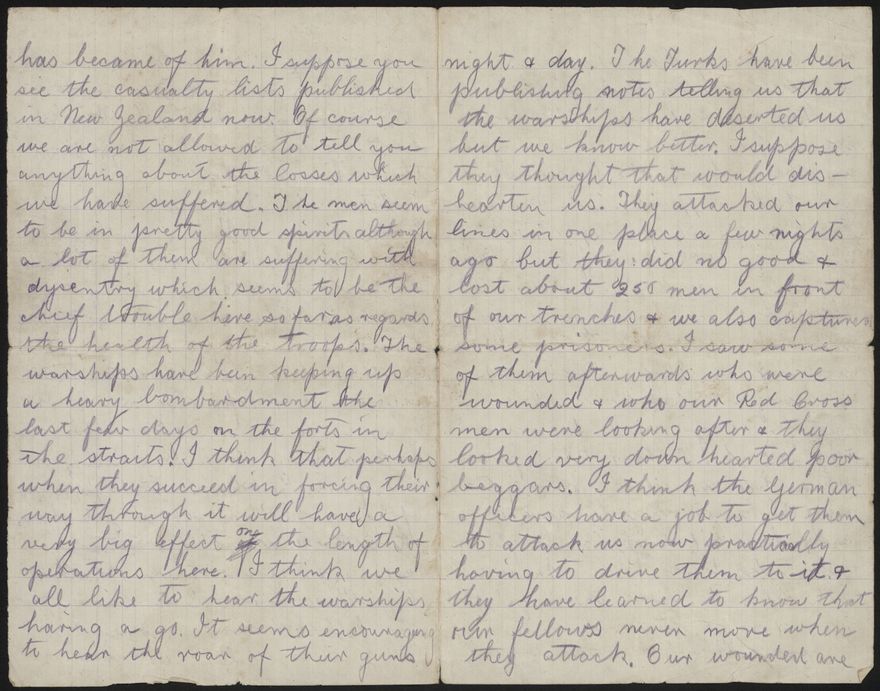 has became of him. I suppose you
see the casualty lists published
in New Zealand now. Of course
we are not allowed to tell you
anything about the losses which
we have suffered. The men seem
to be in pretty good spirits although
a lot of them are suffering with
dysentry which seems to be the
chief trouble here so far as regards
the health of the troops. The
warships have been keeping up
a heavy bombardment the
last few days on the forts in
the straits. I think that perhaps
when they succeed in forcing their
way through it will have a
very big effect on the length of
operations here. I think we
all like to hear the warships
having a go. It seems encouraging
to hear the roar of their guns
night & day. The Turks have been
publishing notes telling us that
the warships have deserted us
but we know better. I suppose
they thought that would dis-
hearten us. They attacked our
lines in one place a few nights
ago but they did no good &
lost about 250 men in front
of our trenches & we also captured
some prisoners. I saw some
of them afterwards who were
wounded & who our Red Cross
men were looking after & they
looked very down hearted poor
beggars. I think the German
officers have a job to get them
to attack us now practically
having to drive them to it &
they have learned to know that
our fellows never move when
they attack. Our wounded are